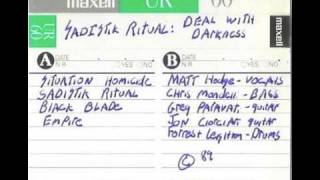 maxell UR 60
UR
60
SADISTIK RITUAL: DEAL WITH
DARKNESS
A DATE
N.R. YES NO
B DATE
N.R. YES NO
SITUATION HOMICIDE
SADISTIK RITUAL
BLACK BLADE
EMPIRE
MATT Hodge - VOCALS
Chris Mondell - BASS
Greg - guitar
JON guitar
Forrest - Drums
© 89